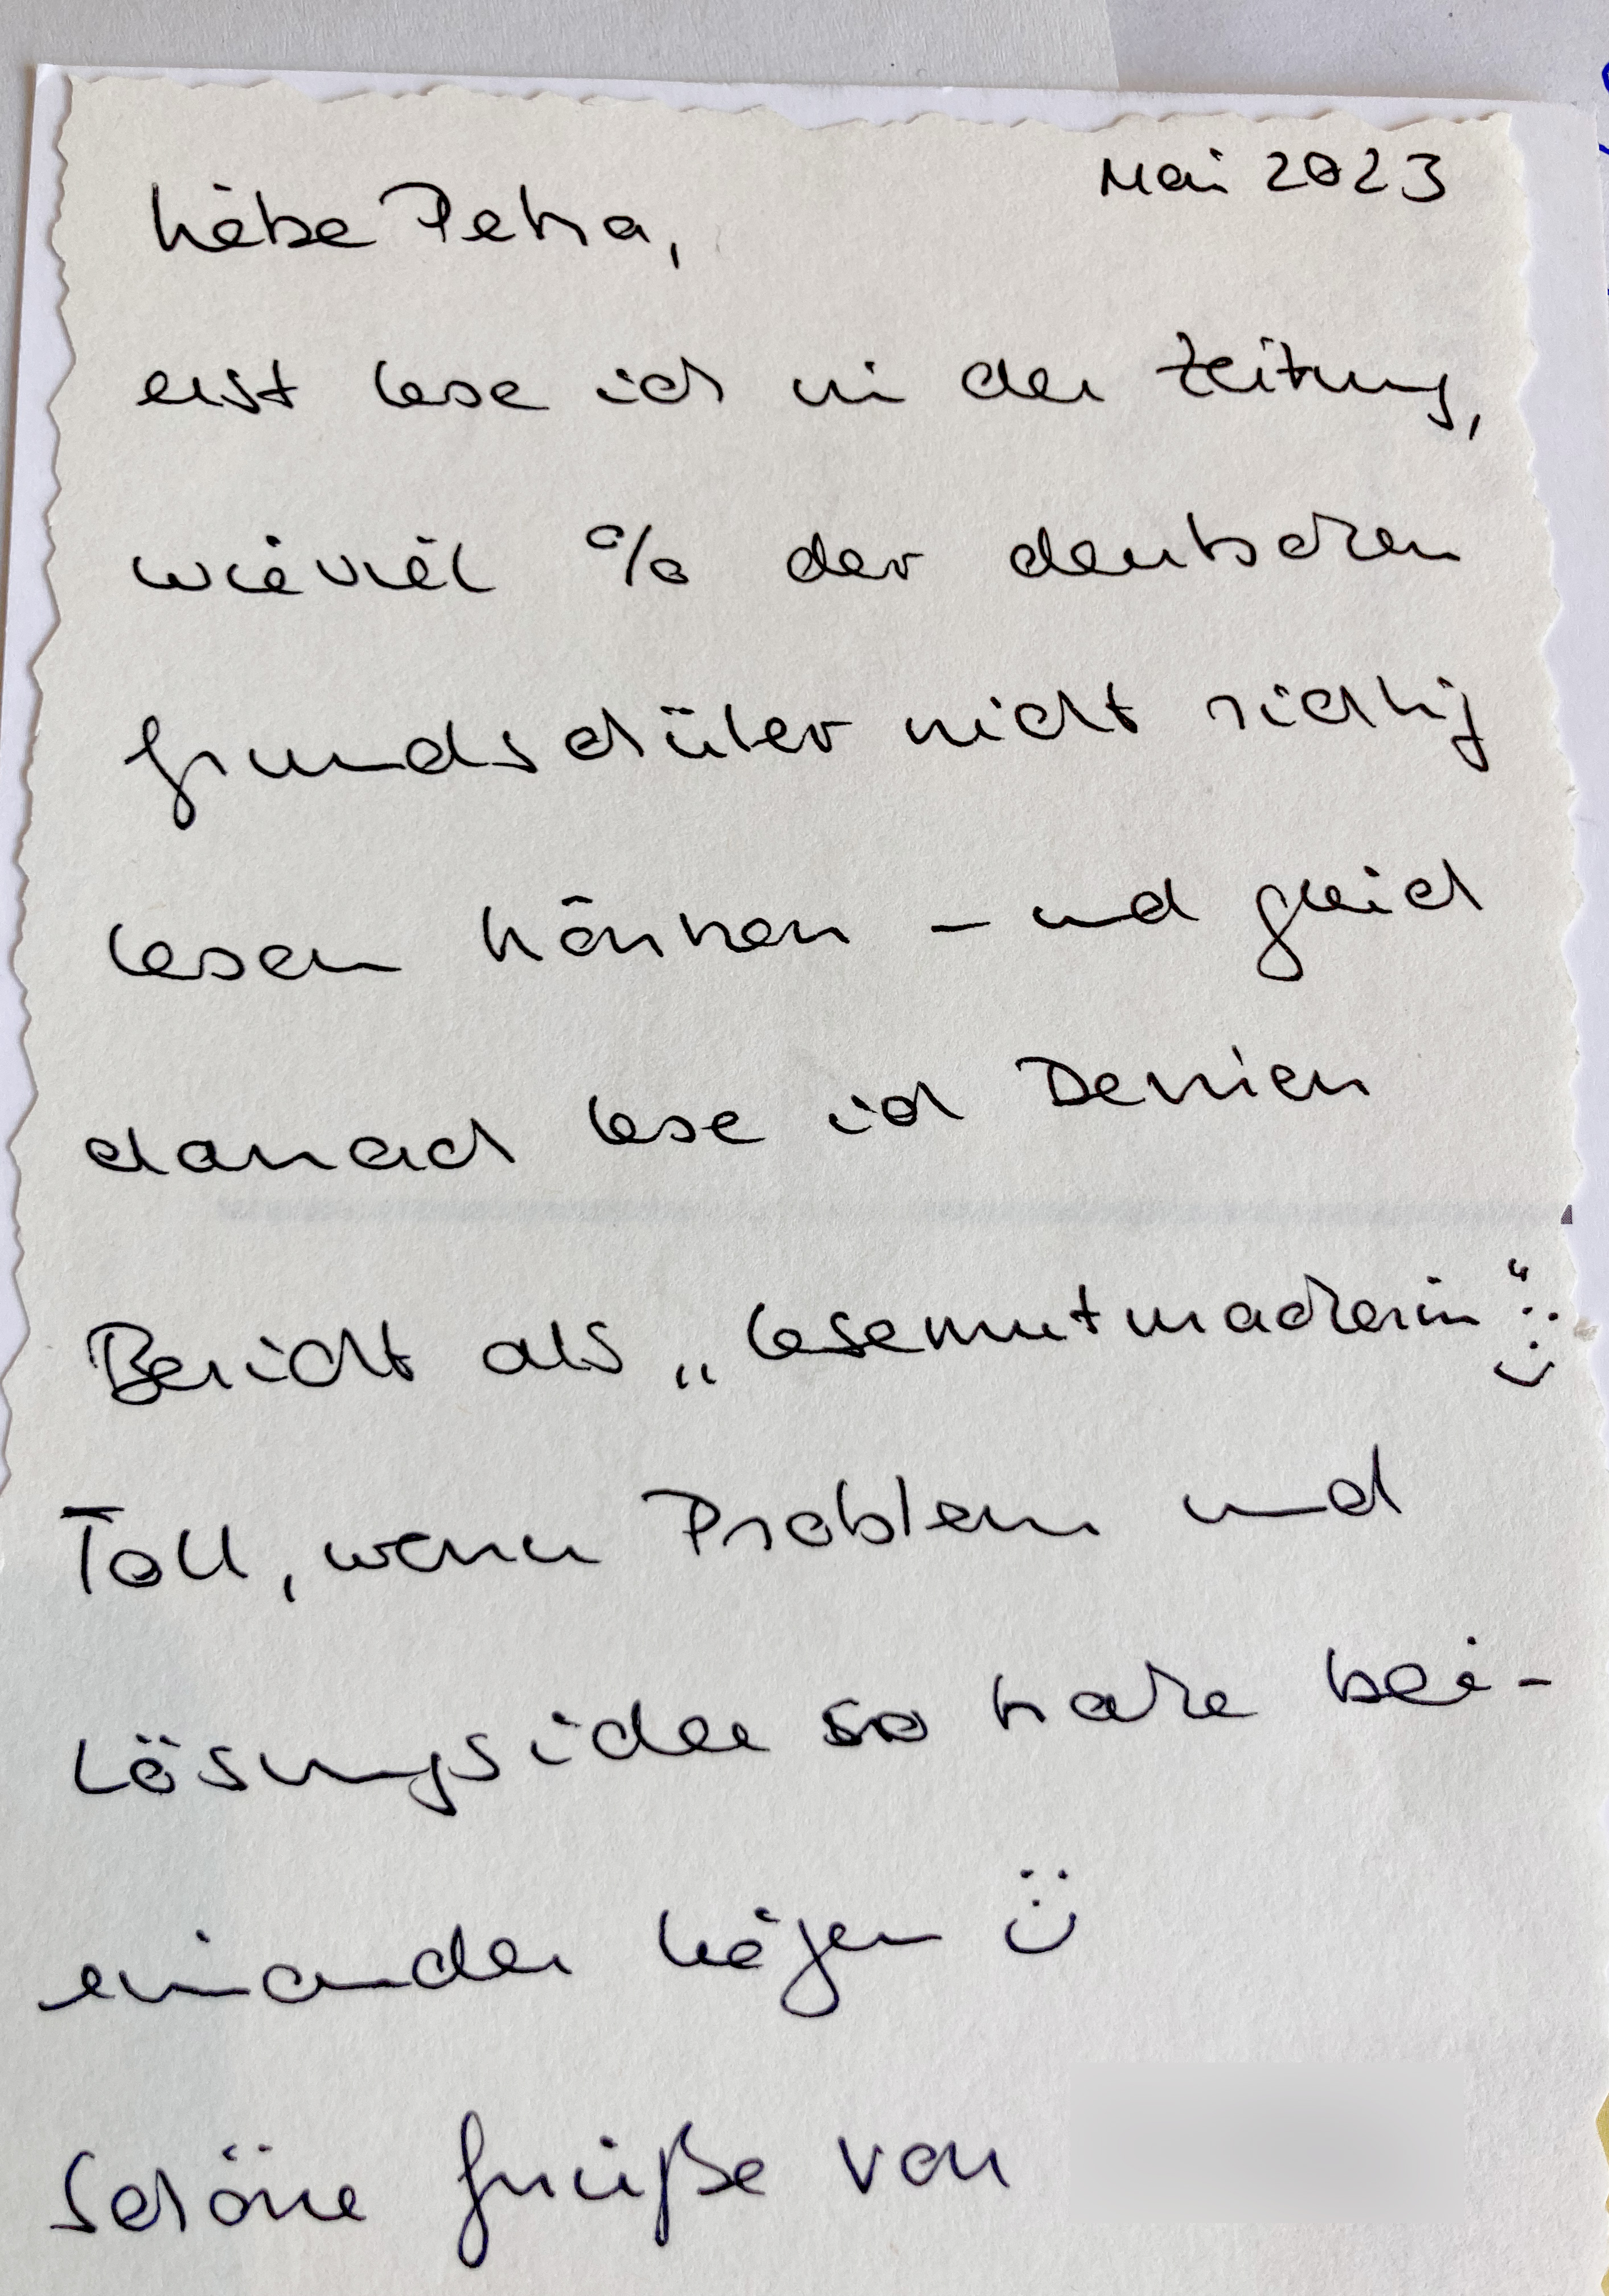 Mai 2023
Liebe Petra,
erst lese ich in der Zeitung,
wieviel % der deutschen
Grundschüler nicht richtig
lesen können – und gleich
danach lese ich Deinen
Bericht als „Lesemutmacherin“ :)
Toll, wenn Problem und
Lösungsidee so nahe bei-
einander liegen :)
Schöne Grüße von